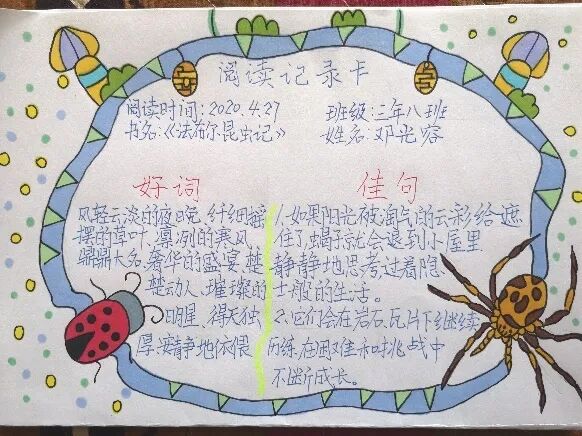 阅读记录卡
阅读时间:2020.4.27
班级:三年八班
书名:《法布尔昆虫记》
姓名:邓光容
好词
风轻云淡的夜晚、纤细摇
摆的草叶、凛冽的寒风、
鼎鼎大名、奢华的盛宴、楚
楚动人、璀璨的
明星、得天独
厚、安静地依偎
佳句
1.如果阳光被淘气的云彩给遮
住了,蝎子就会退到小屋里
静静地思考过着隐
士般的生活。
2.它们会在岩石、瓦片下继续
历练,在困难和挑战中
不断成长。